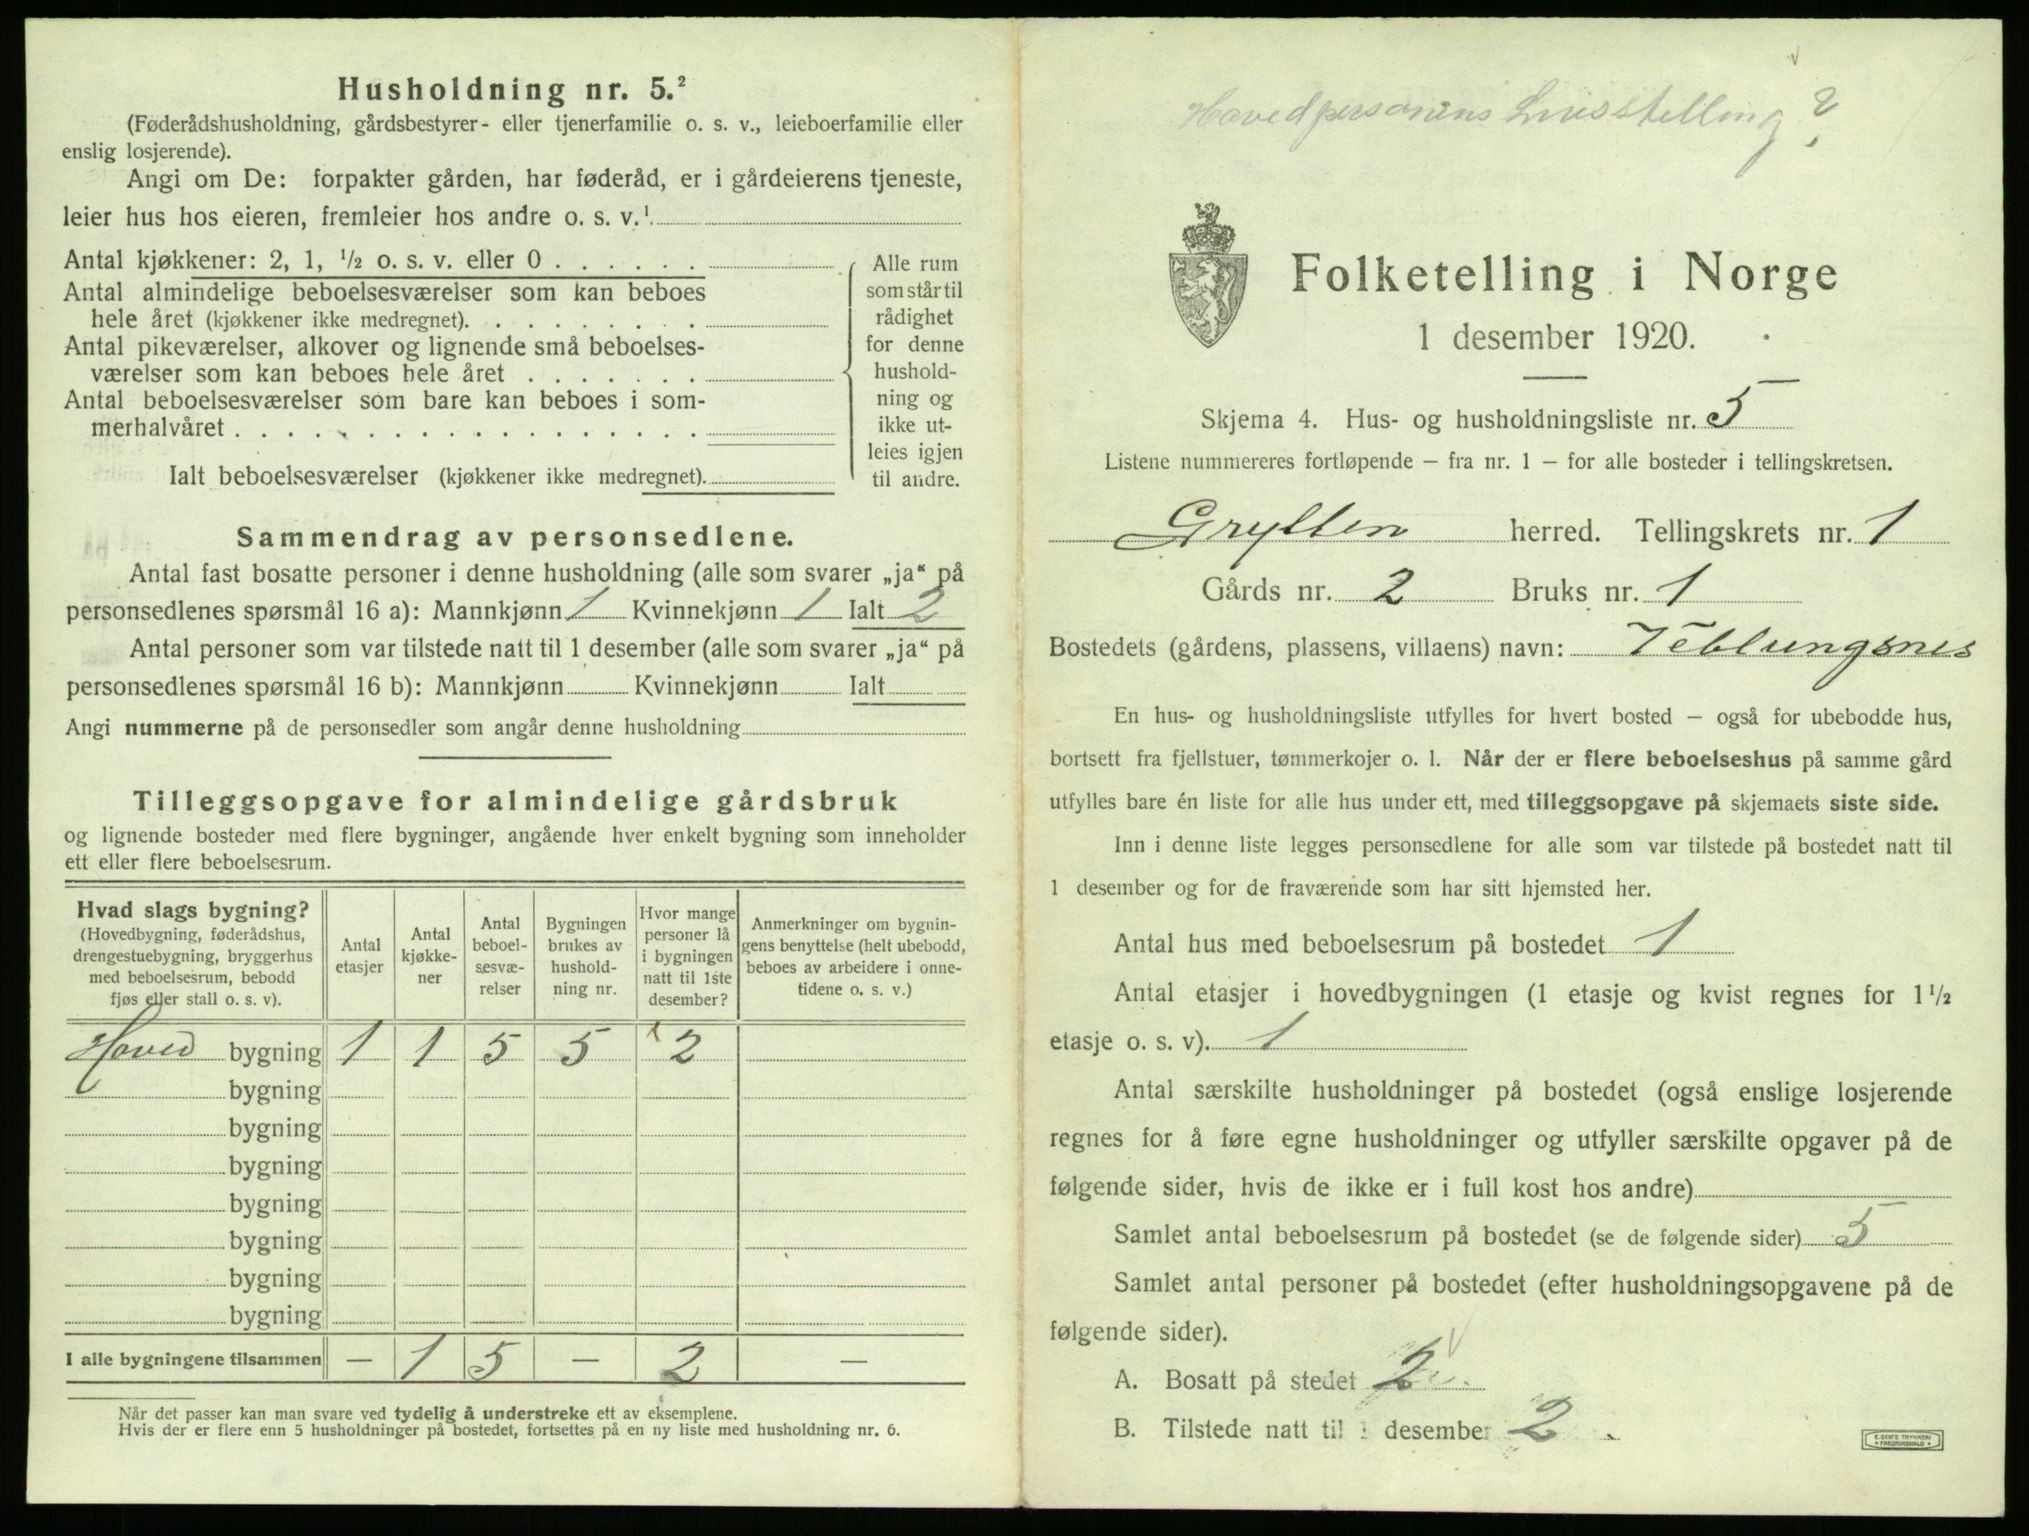 Husholdning nr. 5.²
(Føderådshusholdning, gårdsbestyrer- eller tjenerfamilie o. s. v., leieboerfamilie eller
enslig losjerende).
Angi om De: forpakter gården, har føderåd, er i gårdeierens tjeneste,
leier hus hos eieren, fremleier hos andre o. s. v.¹
Antal kjøkkener: 2, 1, ½ o. s. v. eller 0 . . . . . .
Antal almindelige beboelsesværelser som kan beboes
hele året (kjøkkener ikke medregnet). . . . . . . . .
Antal pikeværelser, alkover og lignende små beboelses-
værelser som kan beboes hele året . . . . . . .
Antal beboelsesværelser som bare kan beboes i som-
merhalvåret . . . . . . . . . . . . . . . . . .
Ialt beboelsesværelser (kjøkkener ikke medregnet).
Alle rum
som står til
rådighet
for denne
hushold-
ning og
ikke ut-
leies igjen
til andre.
Sammendrag av personsedlene.
Antal fast bosatte personer i denne husholdning (alle som svarer „ja“ på
personsedlenes spørsmål 16 a): Mannkjønn 1 Kvinnekjønn 1 Ialt 2
Antal personer som var tilstede natt til 1 desember (alle som svarer „ja“ på
personsedlenes spørsmål 16 b): Mannkjønn Kvinnekjønn Ialt
Angi nummerne på de personsedler som angår denne husholdning
Tilleggsopgave for almindelige gårdsbruk
og lignende bosteder med flere bygninger, angående hver enkelt bygning som inneholder
ett eller flere beboelsesrum.
Hvad slags bygning?
(Hovedbygning, føderådshus,
drengestuebygning, bryggerhus
med beboelsesrum, bebodd
fjøs eller stall o. s. v).
Antal
etasjer
Antal
kjøkke-
ner
Antal
beboel-
sesvæ-
relser
Bygningen
brukes av
hushold-
ning nr.
Hvor mange
personer lå
i bygningen
natt til 1ste
desember?
Anmerkninger om bygnin-
gens benyttelse (helt ubebodd,
beboes av arbeidere i onne-
tidene o. s. v.)
Hoved bygning 1 1 5 5 2
bygning
bygning
bygning
bygning
bygning
bygning
bygning
I alle bygningene tilsammen — 1 5 — 2 —
Når det passer kan man svare ved tydelig å understreke ett av eksemplene.
Hvis der er flere enn 5 husholdninger på bostedet, fortsettes på en ny liste med husholdning nr. 6.
Hovedpersonens Livsstelling?
Folketelling i Norge
1 desember 1920.
Skjema 4. Hus- og husholdningsliste nr. 5
Listene nummereres fortløpende – fra nr. 1 – for alle bosteder i tellingskretsen.
Grytten herred. Tellingskrets nr. 1
Gårds nr. 2 Bruks nr. 1
Bostedets (gårdens, plassens, villaens) navn: Veblungsnes
En hus- og husholdningsliste utfylles for hvert bosted – også for ubebodde hus,
bortsett fra fjellstuer, tømmerkojer o. l. Når der er flere beboelseshus på samme gård
utfylles bare én liste for alle hus under ett, med tilleggsopgave på skjemaets siste side.
Inn i denne liste legges personsedlene for alle som var tilstede på bostedet natt til
1 desember og for de fraværende som har sitt hjemsted her.
Antal hus med beboelsesrum på bostedet 1
Antal etasjer i hovedbygningen (1 etasje og kvist regnes for 1½
etasje o. s. v). 1
Antal særskilte husholdninger på bostedet (også enslige losjerende
regnes for å føre egne husholdninger og utfyller særskilte opgaver på de
følgende sider, hvis de ikke er i full kost hos andre)
Samlet antal beboelsesrum på bostedet (se de følgende sider) 5
Samlet antal personer på bostedet (efter husholdningsopgavene på de
følgende sider).
A. Bosatt på stedet 2
B. Tilstede natt til 1 desember 2
E. SEM'S TRYKKERI
• FREDRIKSHALD •